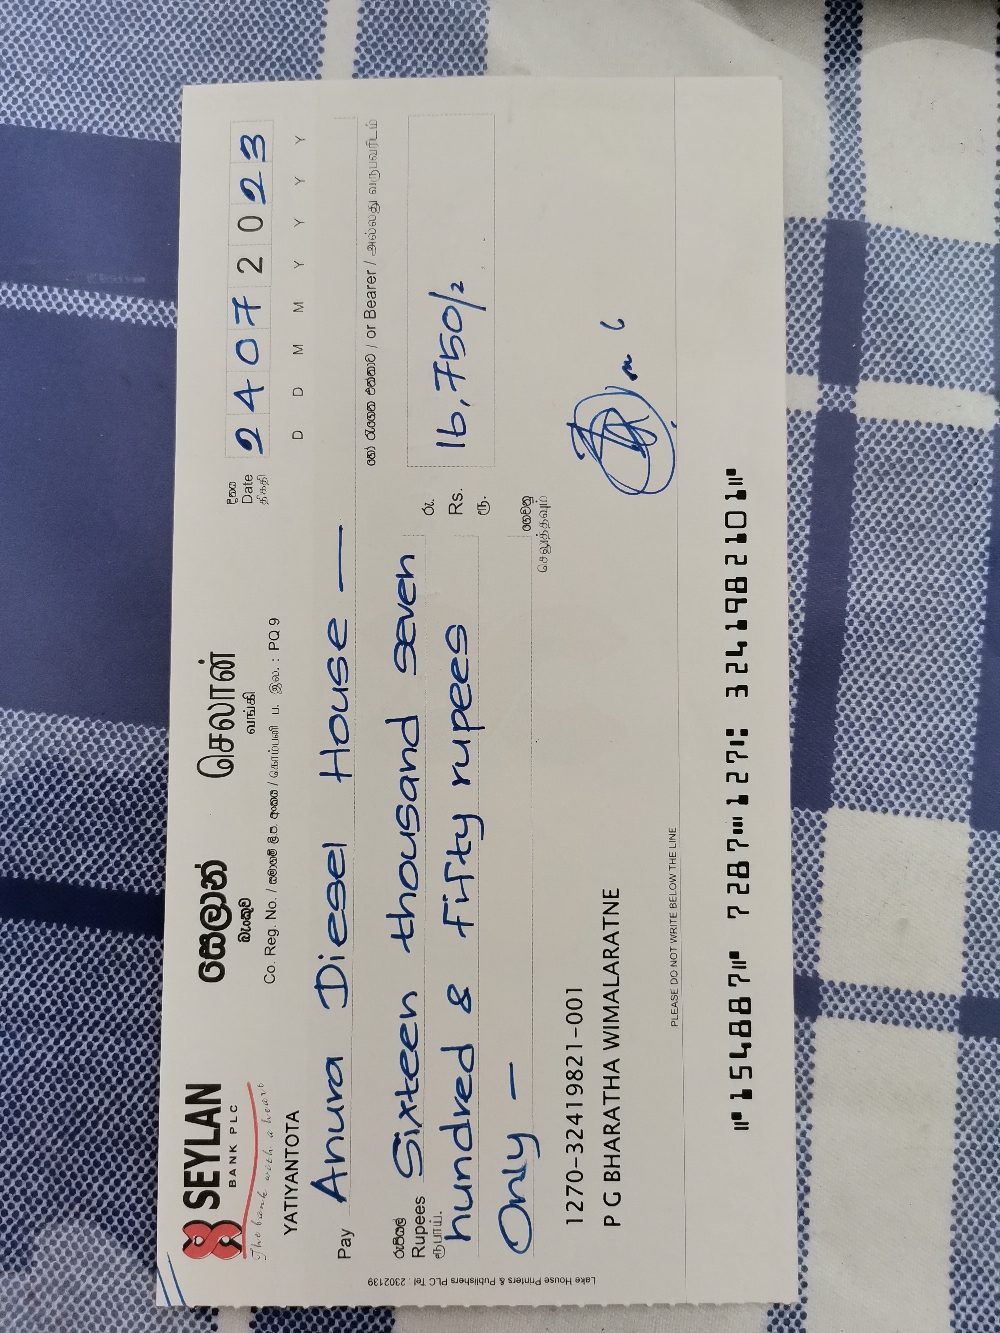 SEYLAN
BANK PLC
The bank with a heart
සෙලාන්
බැංකුව
செலான்
வங்கி
Co. Reg. No. / PQ 9
YATIYANTOTA
Date
திகதி
24072023
D D M M Y Y Y Y
Pay Anura Diesel House —
or Bearer / அல்லது வருபவரிடம்
Rupees Sixteen thousand seven
ரூபாய். hundred & fifty rupees
Only —
රු.
Rs. 16,750/=
ரூ.
செலுத்தவும்
1270-32419821-001
P G BHARATHA WIMALARATNE
PLEASE DO NOT WRITE BELOW THE LINE
⑈154887⑈ 7287⑉127⑆ 3241982101⑈
Lake House Printers & Publishers PLC Tel : 2302139